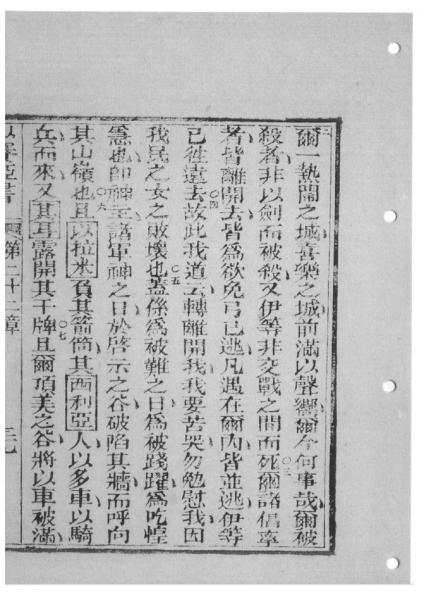 爾一熱鬧之城喜樂之城前滿以聲響爾今何事哉爾被
殺者非以劍而被殺又伊等非交戰之間而死〇三爾諸倡率
者皆離開去皆爲欲免弓已逃凡遇在爾內皆並逃伊等
已徃遠去〇四故此我道云轉離開我我要苦哭勿勉慰我因
我民之女之敗壞也〇五蓋係爲被難之日爲被踐躍爲吃惶
也即神主諸軍神之日於啓示之谷破陷其牆而呼向
其山嶺也〇六且以拉米負其箭筒其西利亞人以多車以騎
兵而來又其耳露開其干牌〇七且爾頂美之谷將以車被滿
書 第二十二章